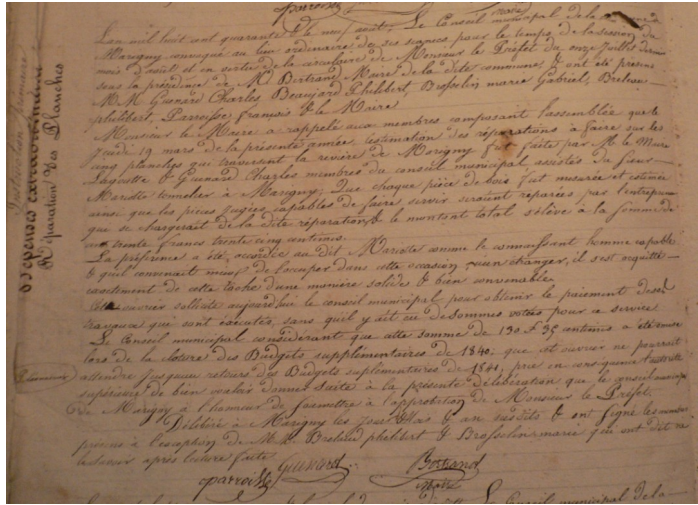 parroisse
maire
L'an mil huit cent quarante le neuf août. Le Conseil municipal de la
Marigny convoqué au lieu ordinaire de ses séances, pour le temps de la session du
mois d'août et en vertu de la circulaire de Monsieur le Préfet du onze Juillet dernier
sous la présidence de Mr Bertrand Maire de la dite commune, & ont été présens
M.M. Guenard Charles, Beaujard Philibert, Brosselin marie Gabriel, Breleau
philibert, Parroisse françois & le Maire
Monsieur le Maire a rappelé aux membres composant l'assemblée que le
Jeudi 19 mars de la présente année, l'estimation des réparations à faire sur les
planches qui traversent la rivière de Marigny fut faite par M. le Maire
Lagoutte & Guenard Charles membres du conseil municipal assistés du sieur
Mariotte tonnelier à Marigny; Que chaque pièce de bois fut mesurée et estimée
ainsi que les pieces jugées capables de faire servir seraient réparées par l'entrepreneur
que se chargerait de la dite réparation, & le montant total s'élève à la somme de
cent trente francs trente cinq centimes.
La préférence a été accordée au dit Mariotte comme le connaissant homme capable
& qu'il convenait mieux de l'occuper dans cette occasion, qu'un étranger, il s'est acquitté
exactement de cette tache d'une manière solide & bien convenable.
Cet ouvrier sollicite aujourd'hui le conseil municipal pour obtenir le paiement de ses
travaux qui sont exécutés, sans qu'il y ait eu de sommes votées pour ce service
Le Conseil municipal considérant que cette somme de 130 f 35 centimes a été
lors de la cloture des Budgets supplémentaires de 1840, que cet ouvrier ne pourrait
attendre jusqu'au retour des Budgets supplémentaires de 1841, prie en conséquence l'autorité
supérieure de bien vouloir donner suite à la présente délibération que le conseil municipal
de Marigny à l'honneur de soumettre à l'approbation de Monsieur le Préfet.
Délibéré à Marigny les jour, Mois & an susdits & ont signé les membres
présens à l'exception de M.M. Breleaud philibert & Brosselin marie qui ont dit ne
le savoir après lecture faite
Guenard
Bertrand
parroisse
Maire
Le Conseil municipal de la
Instruction primaire
Dépenses extraordinaires
Réparation des Planches